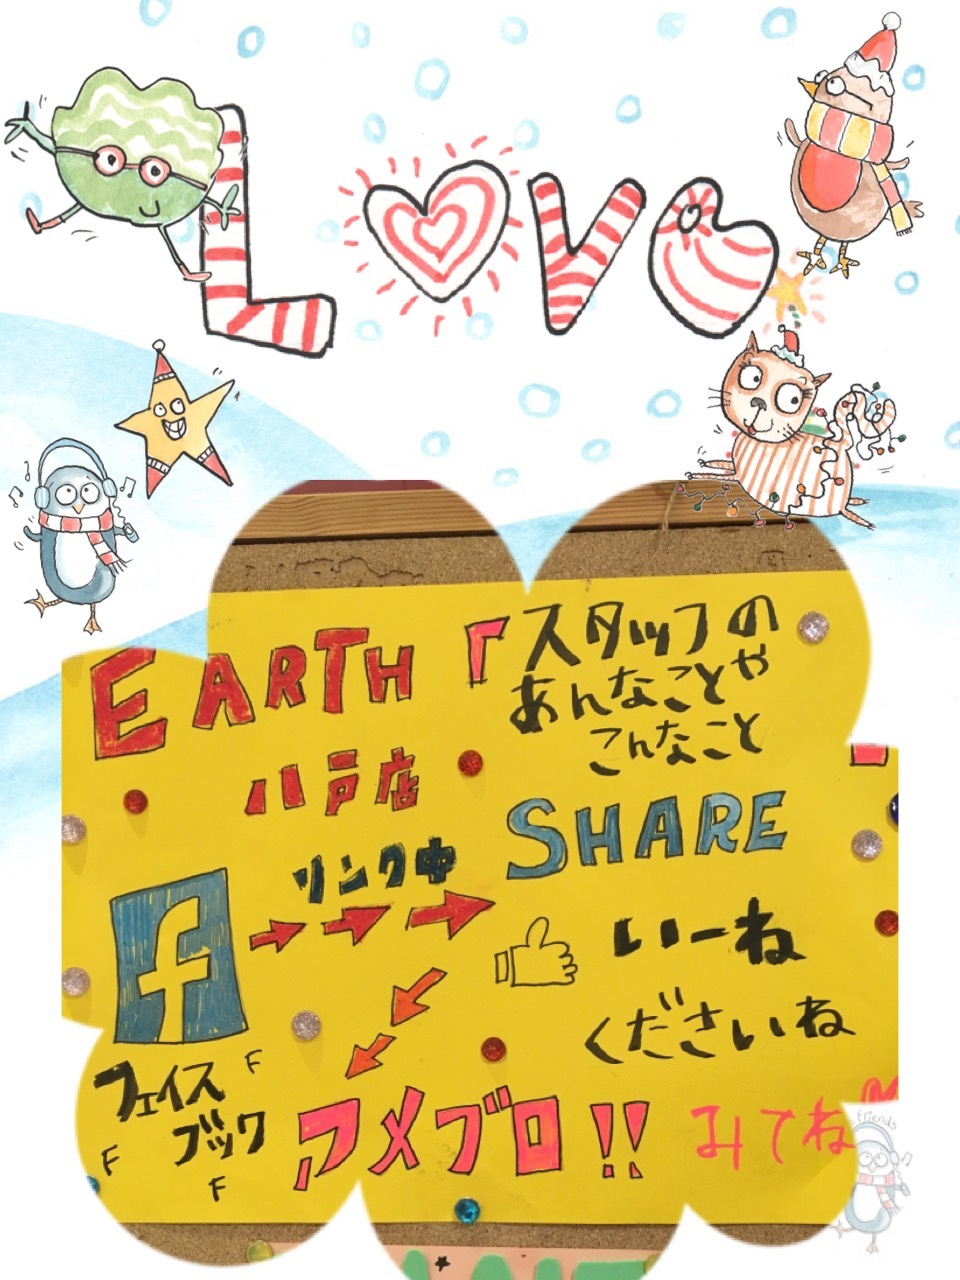 LOVE
EARTH 「スタッフの
あんなことや
こんなこと
八戸店
SHARE
リンク中
f
いーね
くださいね
フェイス
ブック
F
F
F
アメブロ!!
みてね
friends